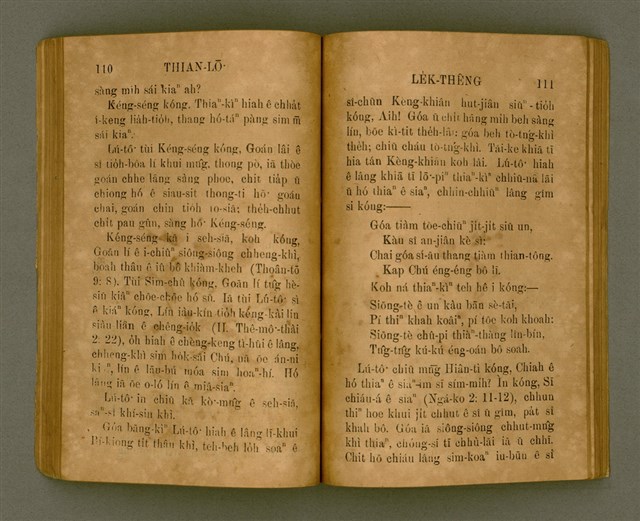 110 THIAN-LŌ͘
sàng mih sái kiaⁿ ah?
Kéng-séng kóng, Thiaⁿ-kìⁿ hiah ê chha̍t
í-keng lia̍h-tio̍h, thang hó-táⁿ pàng sim m̄
sái kiaⁿ.
Lú-tô͘ tùi Kéng-séng kóng, Goán lâi ê
sî tio̍h-bôa lí khui mn̂g, thong pò, iā thòe
goán chhe lâng sàng phoe, chit tia̍p ū
chiong hō͘ ê siau-sit thong-ti hō͘ goán
chai, goán chin tio̍h lo-siâ; the̍h-chhut
chi̍t pau gûn, sàng hō͘ Kéng-séng.
Kéng-séng kā i seh-siā, koh kóng,
Goān lí ê i-chiûⁿ siông-siông chheng-khì,
boah thâu ê iû bô khiàm-kheh (Thoân-tō
9: 8). Tùi Sim-chū kóng, Goān lí tn̂g hè-
siū kiâⁿ chōe-chōe hó sū. Iā tùi Lú-tô͘ sì
ê kiáⁿ kóng, Lín iàu-kín tio̍h kéng-kài lín
siàu-liân ê chêng-io̍k (II. Thê-mô͘-thài
2: 22), o̍h hiah ê chèng-keng tì-hūi ê lâng,
chheng-khì sim ho̍k-sāi Chú, nā òe án-ni
kiâⁿ, lín ê lāu-bú móa sim hoaⁿ-hí. Hó
lâng iā òe o-ló lín ê miâ-siaⁿ.
Lú-tô͘ in chiū kā kò͘-mn̂g ê seh-siā,
saⁿ-sî khí-sin khì.
Góa bāng-kìⁿ Lú-tô͘ hiah ê lâng lī-khui
Pí-kiong tit thâu khì, teh-beh lo̍h soaⁿ ê
LE̍K-THÊNG 111
sî-chūn Keng-khiân hut-jiân siūⁿ-tio̍h
kóng, Aih! Góa ū chi̍t hāng mih beh sàng
lín, bōe kì-tit the̍h-lâi: góa beh tò-tńg-khì
the̍h; chiū cháu tò-tńg-khì. Tāi-ke khiā tī
hia tán Kèng-khiân koh lâi. Lú-tô͘ hiah
ê lâng khiā tī lō͘-piⁿ thiaⁿ-kìⁿ chhiū-nâ lāi
ū hó thiaⁿ ê siaⁿ, chhin-chhiūⁿ lâng gîm
si kóng:——
Góa tiàm tōe-chiūⁿ ji̍t-ji̍t siū un,
Kàu sí an-jiân kè sì:
Chai góa sī-āu thang tiàm thian-tông.
Kap Chú éng-éng bô lī.
Koh ná thiaⁿ-kìⁿ teh hê i kóng:—
Siōng-tè ê un kàu bān sè-tāi,
Pí thiⁿ khah koâiⁿ, pí tōe koh khoah:
Siōng-tè chû-pi thiàⁿ-thàng lín-bín,
Tn̂g-tn̂g kú-kú éng-oán bô soah.
Lú-tô͘ chiū mn̄g Hiân-ti kóng, Chiah ê
hó thiaⁿ ê siaⁿ-im sī sím-mih! In kóng, Sī
chiáu-á ê siaⁿ (Ngá-ko 2: 11-12), chhun
thiⁿ hoe khui ji̍t chhut ê sî ū gîm, pa̍t sî
khah bô. Góa iā siông-siông chhut-mn̂g
khì thiaⁿ, chóng-sī tī chhù-lāi iā ū chhī.
Chit hō chiáu lâng sim-koaⁿ iu-būn ê sî